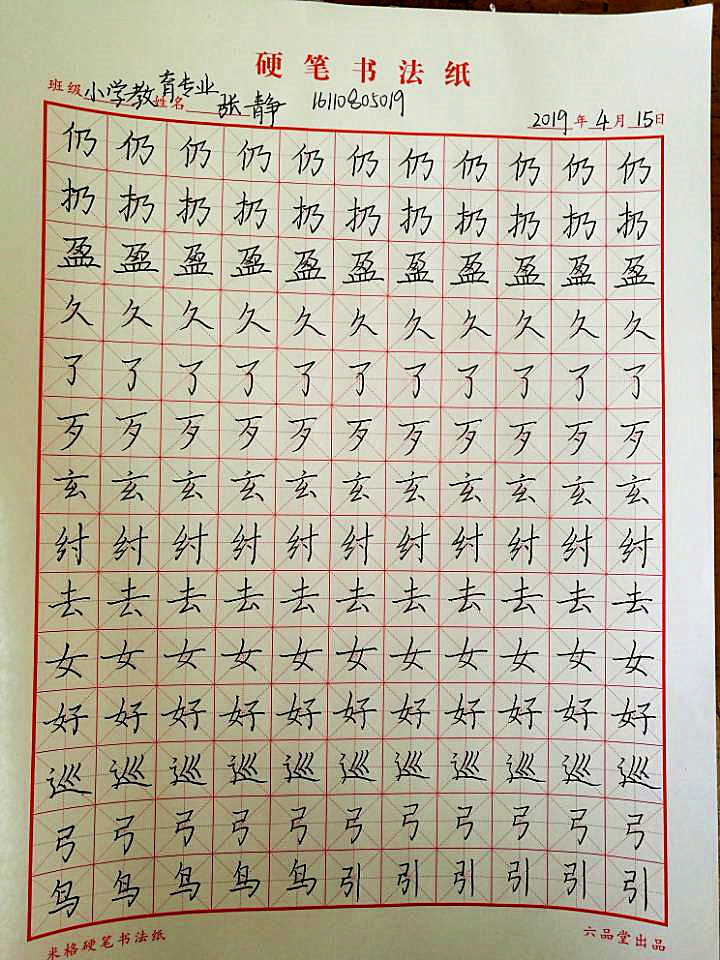 硬笔书法纸
班级 小学教育专业 姓名 张静 16110805019 2019年4月15日
仍仍仍仍仍仍仍仍仍仍仍
扔扔扔扔扔扔扔扔扔扔扔
盈盈盈盈盈盈盈盈盈盈盈
久久久久久久久久久久久
了了了了了了了了了了了
歹歹歹歹歹歹歹歹歹歹歹
玄玄玄玄玄玄玄玄玄玄玄
纣纣纣纣纣纣纣纣纣纣纣
去去去去去去去去去去去
女女女女女女女女女女女
好好好好好好好好好好好
巡巡巡巡巡巡巡巡巡巡巡
弓弓弓弓弓弓弓弓弓弓弓
鸟鸟鸟鸟鸟引引引引引引
米格硬笔书法纸 六品堂出品